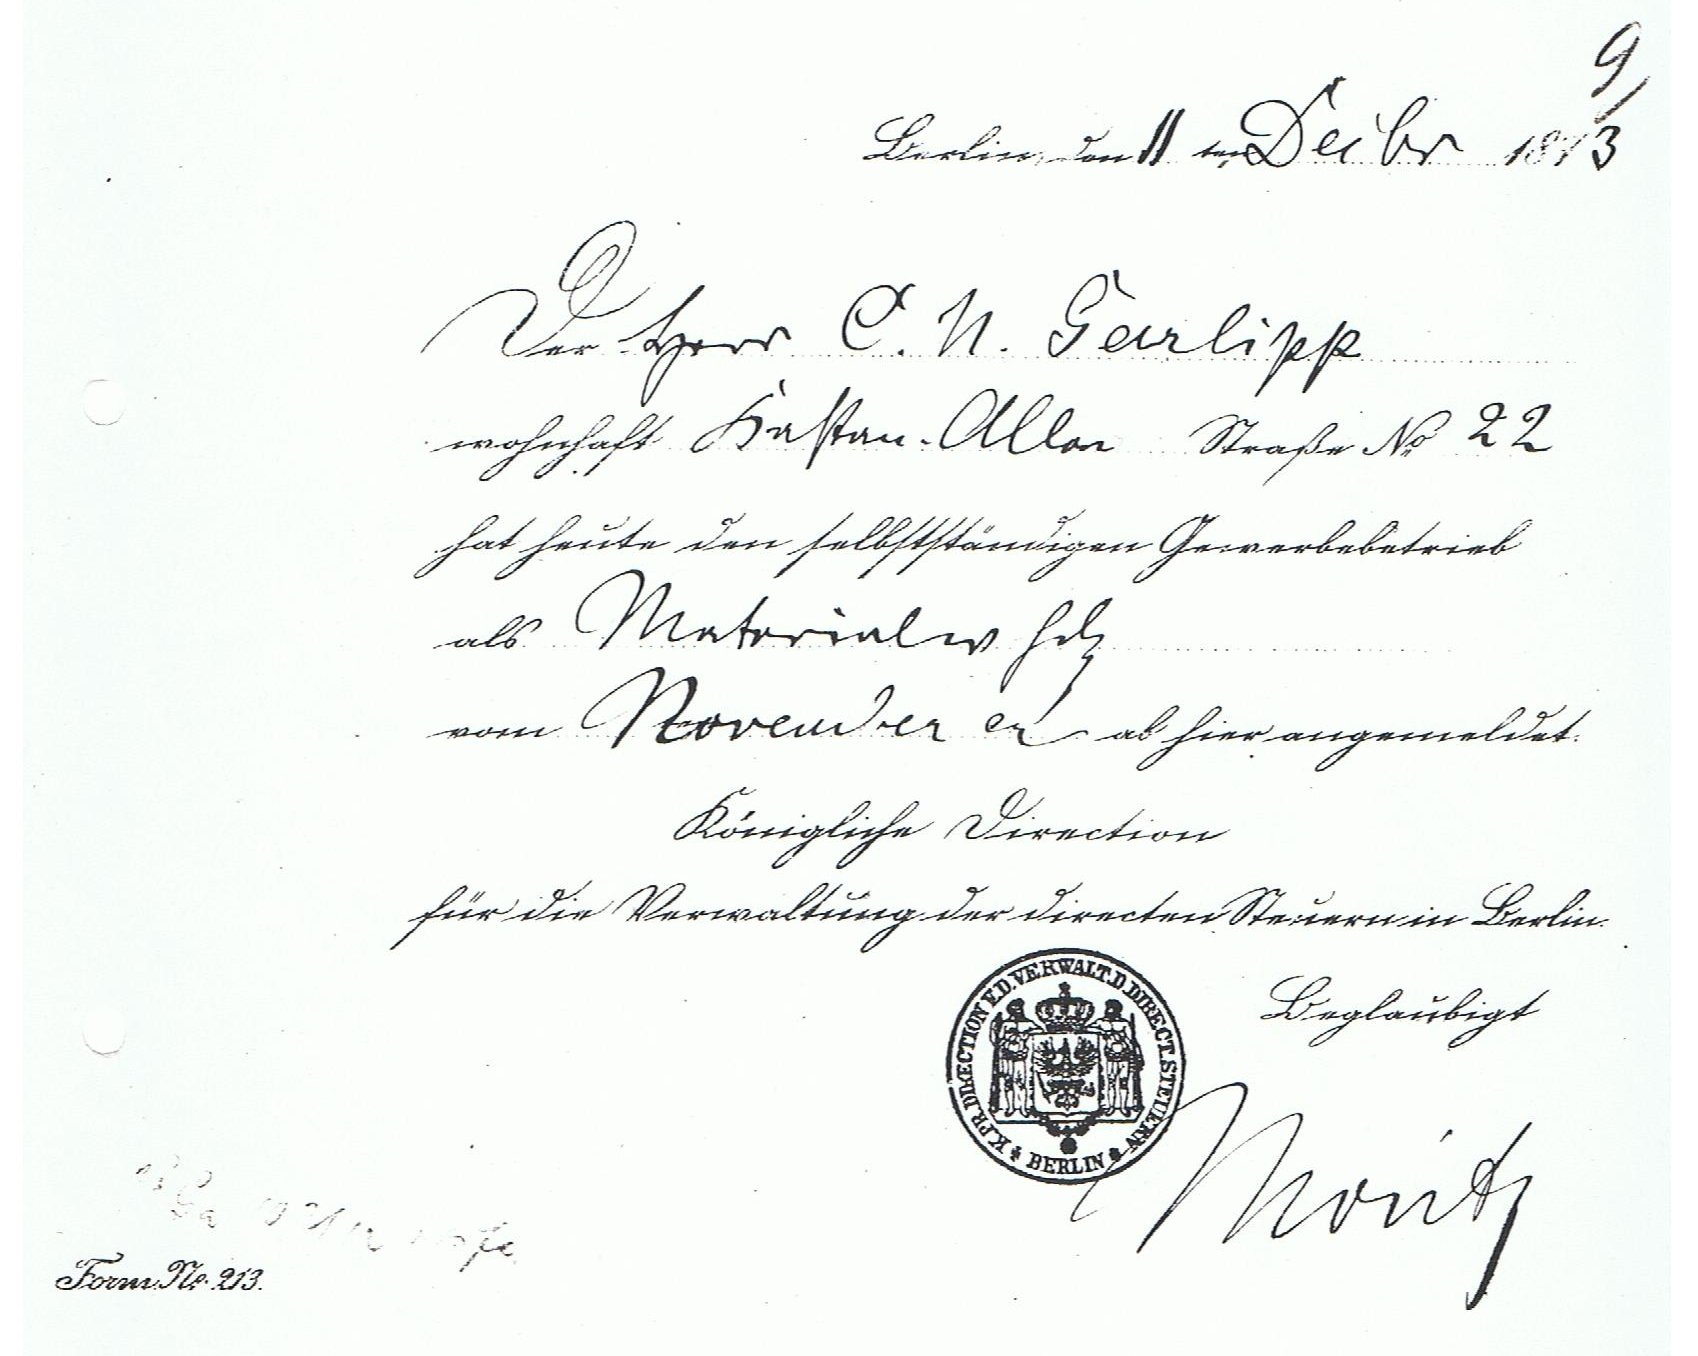 9
Berlin, den 11 ten Decbr 1893
Der Herr C. N. Garlipp
wohnhaft Kastan. Allee Straße No 22
hat heute den selbstständigen Gewerbebetrieb
als Materialw hdlg
vom November cr ab hier angemeldet.
Königliche Direction
für die Verwaltung der directen Steuern in Berlin.
K. PR. DIRECTION F. D. VERWALT. D. DIRECT. STEUERN
BERLIN
Beglaubigt
Moritz
Form Nr. 213.